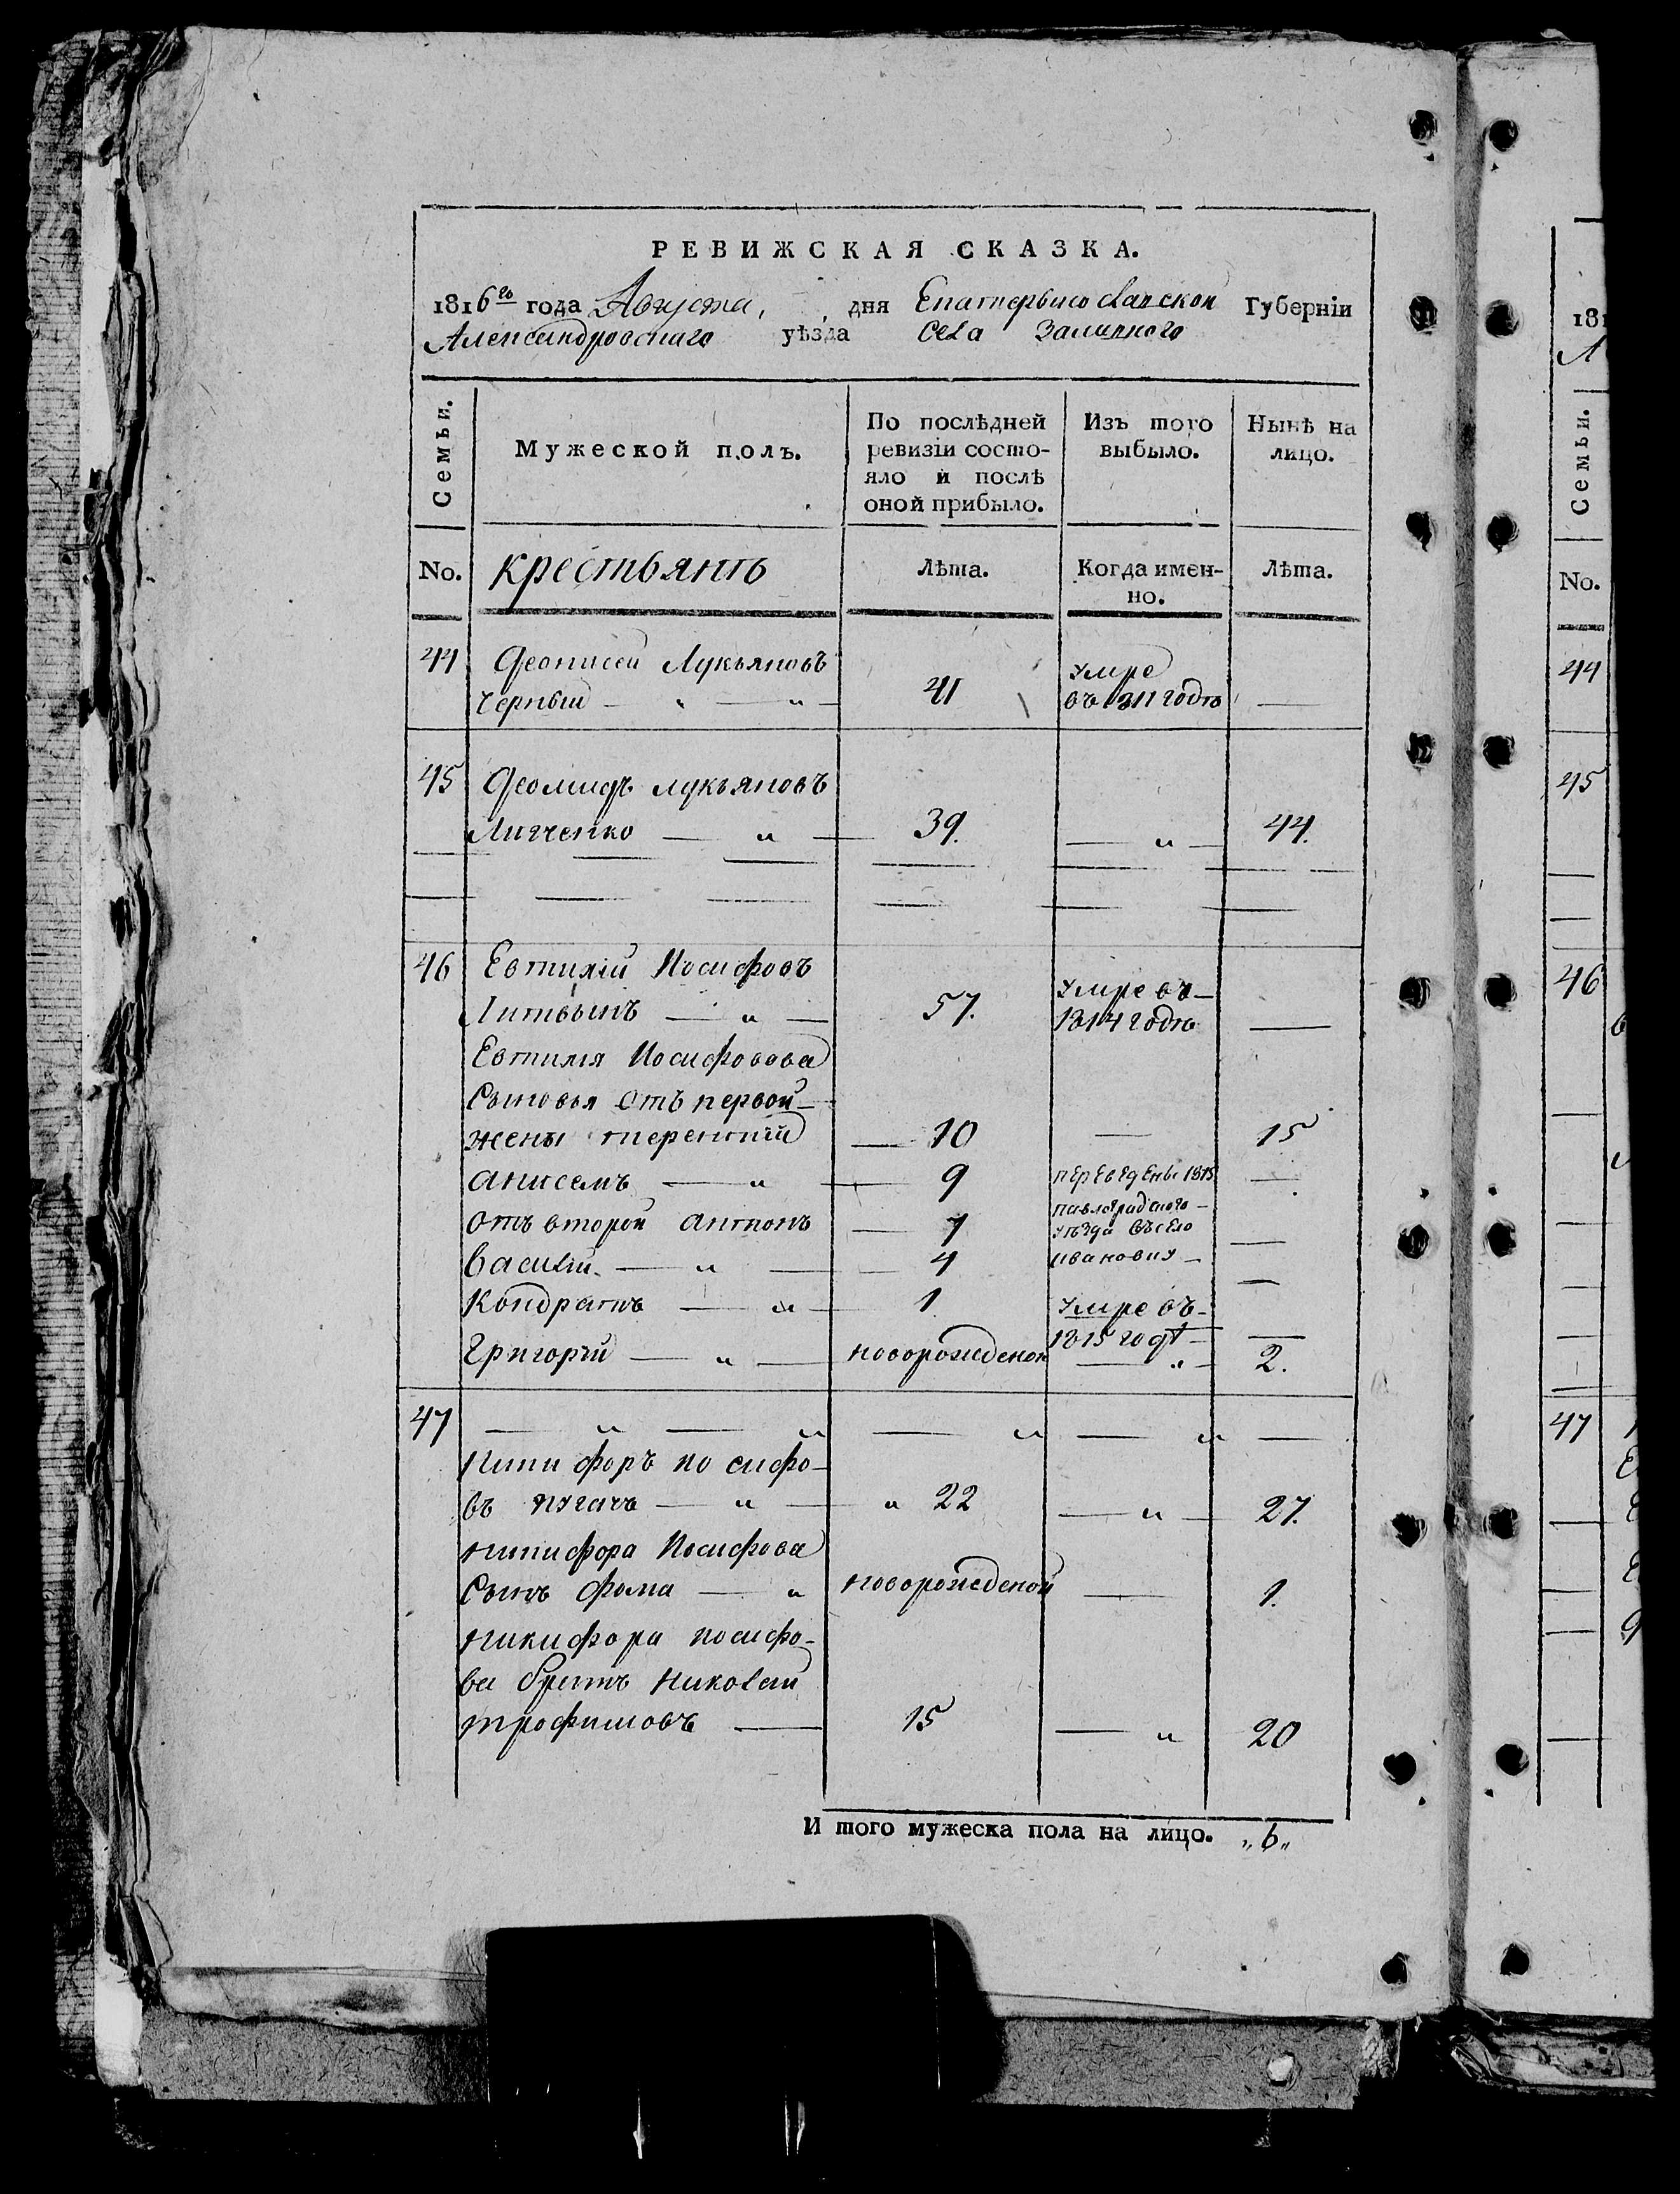 РЕВИЖСКАЯ СКАЗКА.
1816го года Августа, дня Екатеринославской Губерніи
Александровскаго уѣзда Села
Семьи.
Мужеской полъ.
По послѣдней ревизіи состо-
яло и послѣ
оной прибыло.
Изъ того выбыло.
Нынѣ на лицо.
No. крестьянъ Лѣта. Когда имен-
но. Лѣта.
44 Лукьяновъ
Черный — " — " — 41 умре
въ 1811 годѣ —
45 Феомидъ Лукьяновъ
— " — 39. — " — 44.
46 Евтихій Иосифовъ
Литвинъ — " — 57. умре въ
1814 годѣ —
Евтихія Иосифовова
Сыновья отъ первой
жены терентій — 10 — 15
анисемъ — " — 9 переведены 1815 —
отъ второй антонъ — 7 павлоградского
уѣзда въ село —
Василій — " — 4 ивановку —
Кондратъ — " — 1 умре въ
1815 годѣ —
Григорій — " — новорожденой — " — 2.
47 — " — " — " — " —
Никифоръ иосифо-
въ пугачъ — " — " 22 — " — 27.
никифора Иосифова
Сынъ фома — " новорожденой — 1.
никифора иосифо-
ва братъ николай
трофимовъ — 15 — " 20
И того мужеска пола на лицо. „6„
181
Семьи.
No.
44
45
46
47